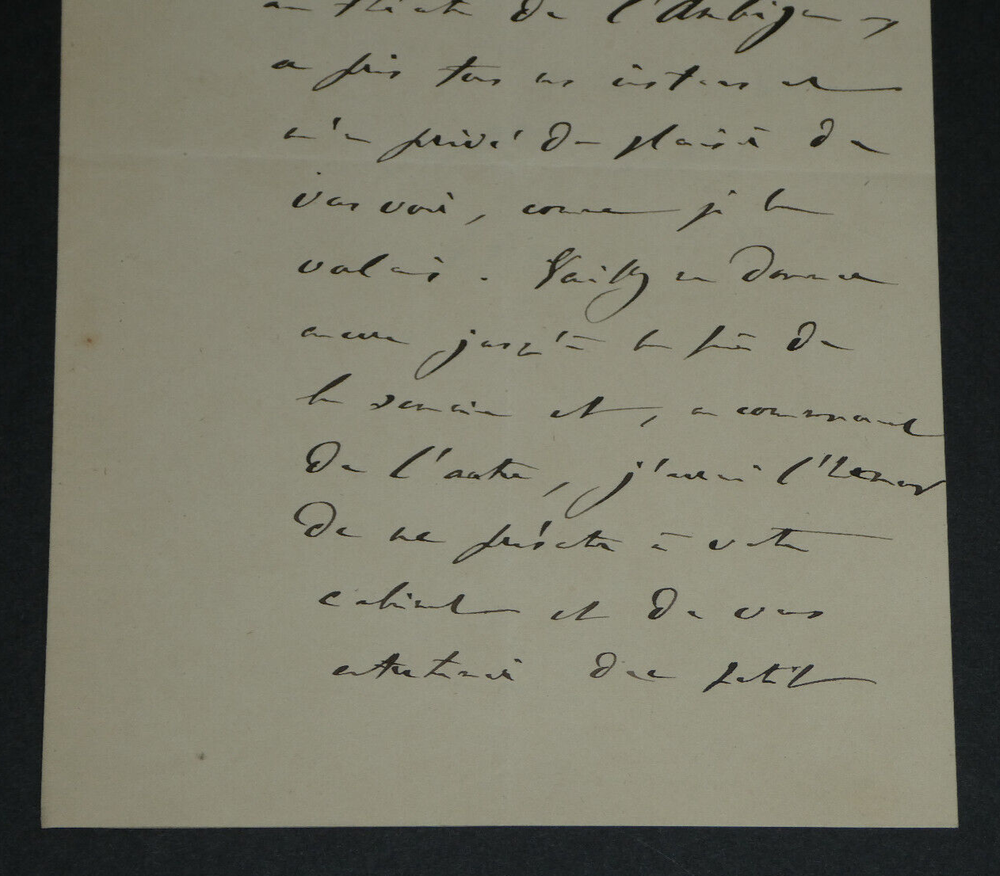 au théâtre de l'Ambigu,
a pris tous mes instans et
m'a privé du plaisir de
vous voir, comme je le
voulais. Veuillez me donner
encore jusqu'à la fin de
la semaine et, au commencement
de l'autre, j'aurai l'honneur
de me présenter à votre
cabinet et de vous
entretenir du petit